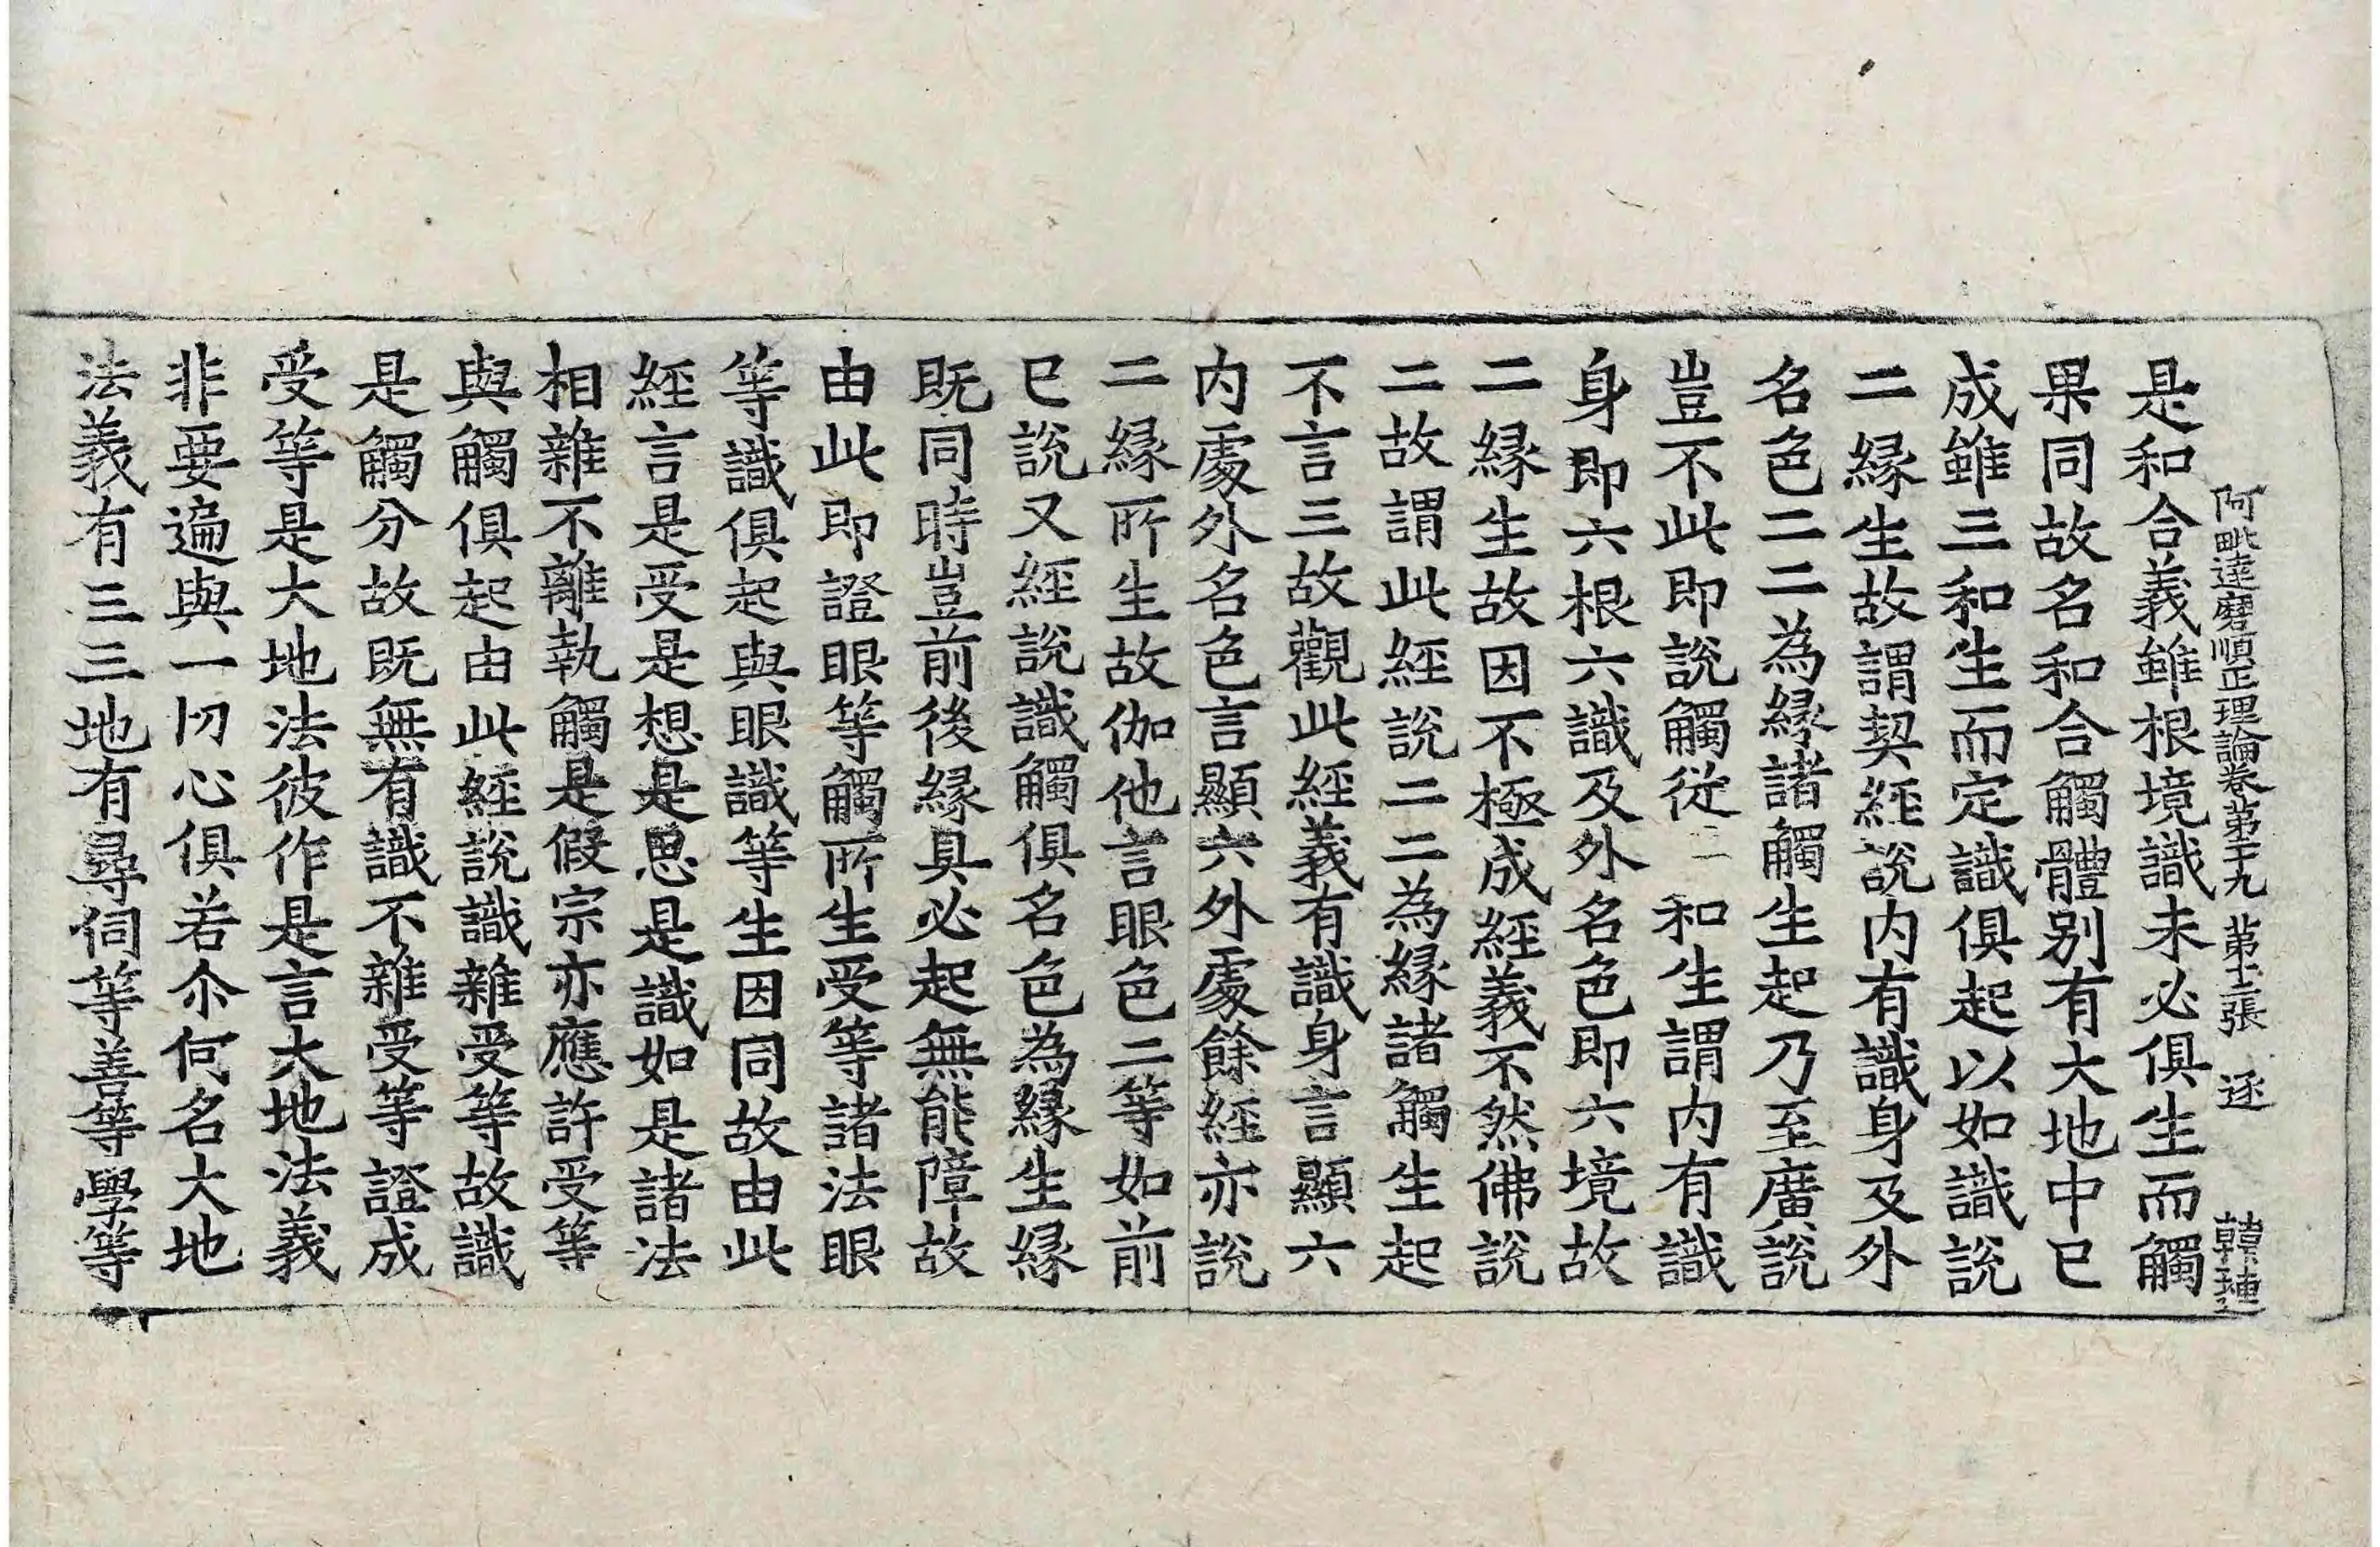 阿毗達磨順正理論卷第二十九 第十二張 逐 韓璉
是和合義雖根境識未必俱生而觸
果同故名和合觸體別有大地中已
成雖三和生而定識俱起以如識說
二緣生故謂契經說內有識身及外
名色二二為緣諸觸生起乃至廣說
豈不此即說觸從二和生謂內有識
身即六根六識及外名色即六境故
二緣生故因不極成經義不然佛說
二故謂此經說二二為緣諸觸生起
不言三故觀此經義有識身言顯六
內處外名色言顯六外處餘經亦說
二緣所生故伽他言眼色二等如前
已說又經說識觸俱名色為緣生緣
既同時豈前後緣具必起無能障故
由此即證眼等觸所生受等諸法眼
等識俱起與眼識等生因同故由此
經言是受是想是思是識如是諸法
相雜不離執觸是假宗亦應許受等
與觸俱起由此經說識雜受等故識
是觸分故既無有識不雜受等證成
受等是大地法彼作是言大地法義
非要遍與一切心俱若尒何名大地
法義有三三地有尋伺等善等學等